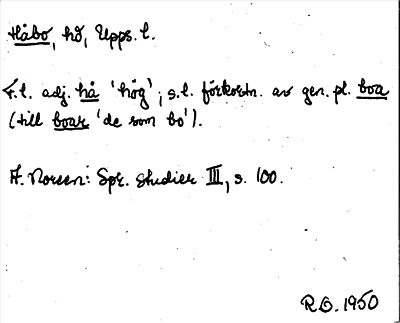 Håbo, hd, Upps. l.
F. l. adj. hå 'hög'; s. l. förkortn. av gen. pl. boa
(till boar 'de som bo').
A. Noreen: Spr. studier III, s. 100.
R.O. 1950